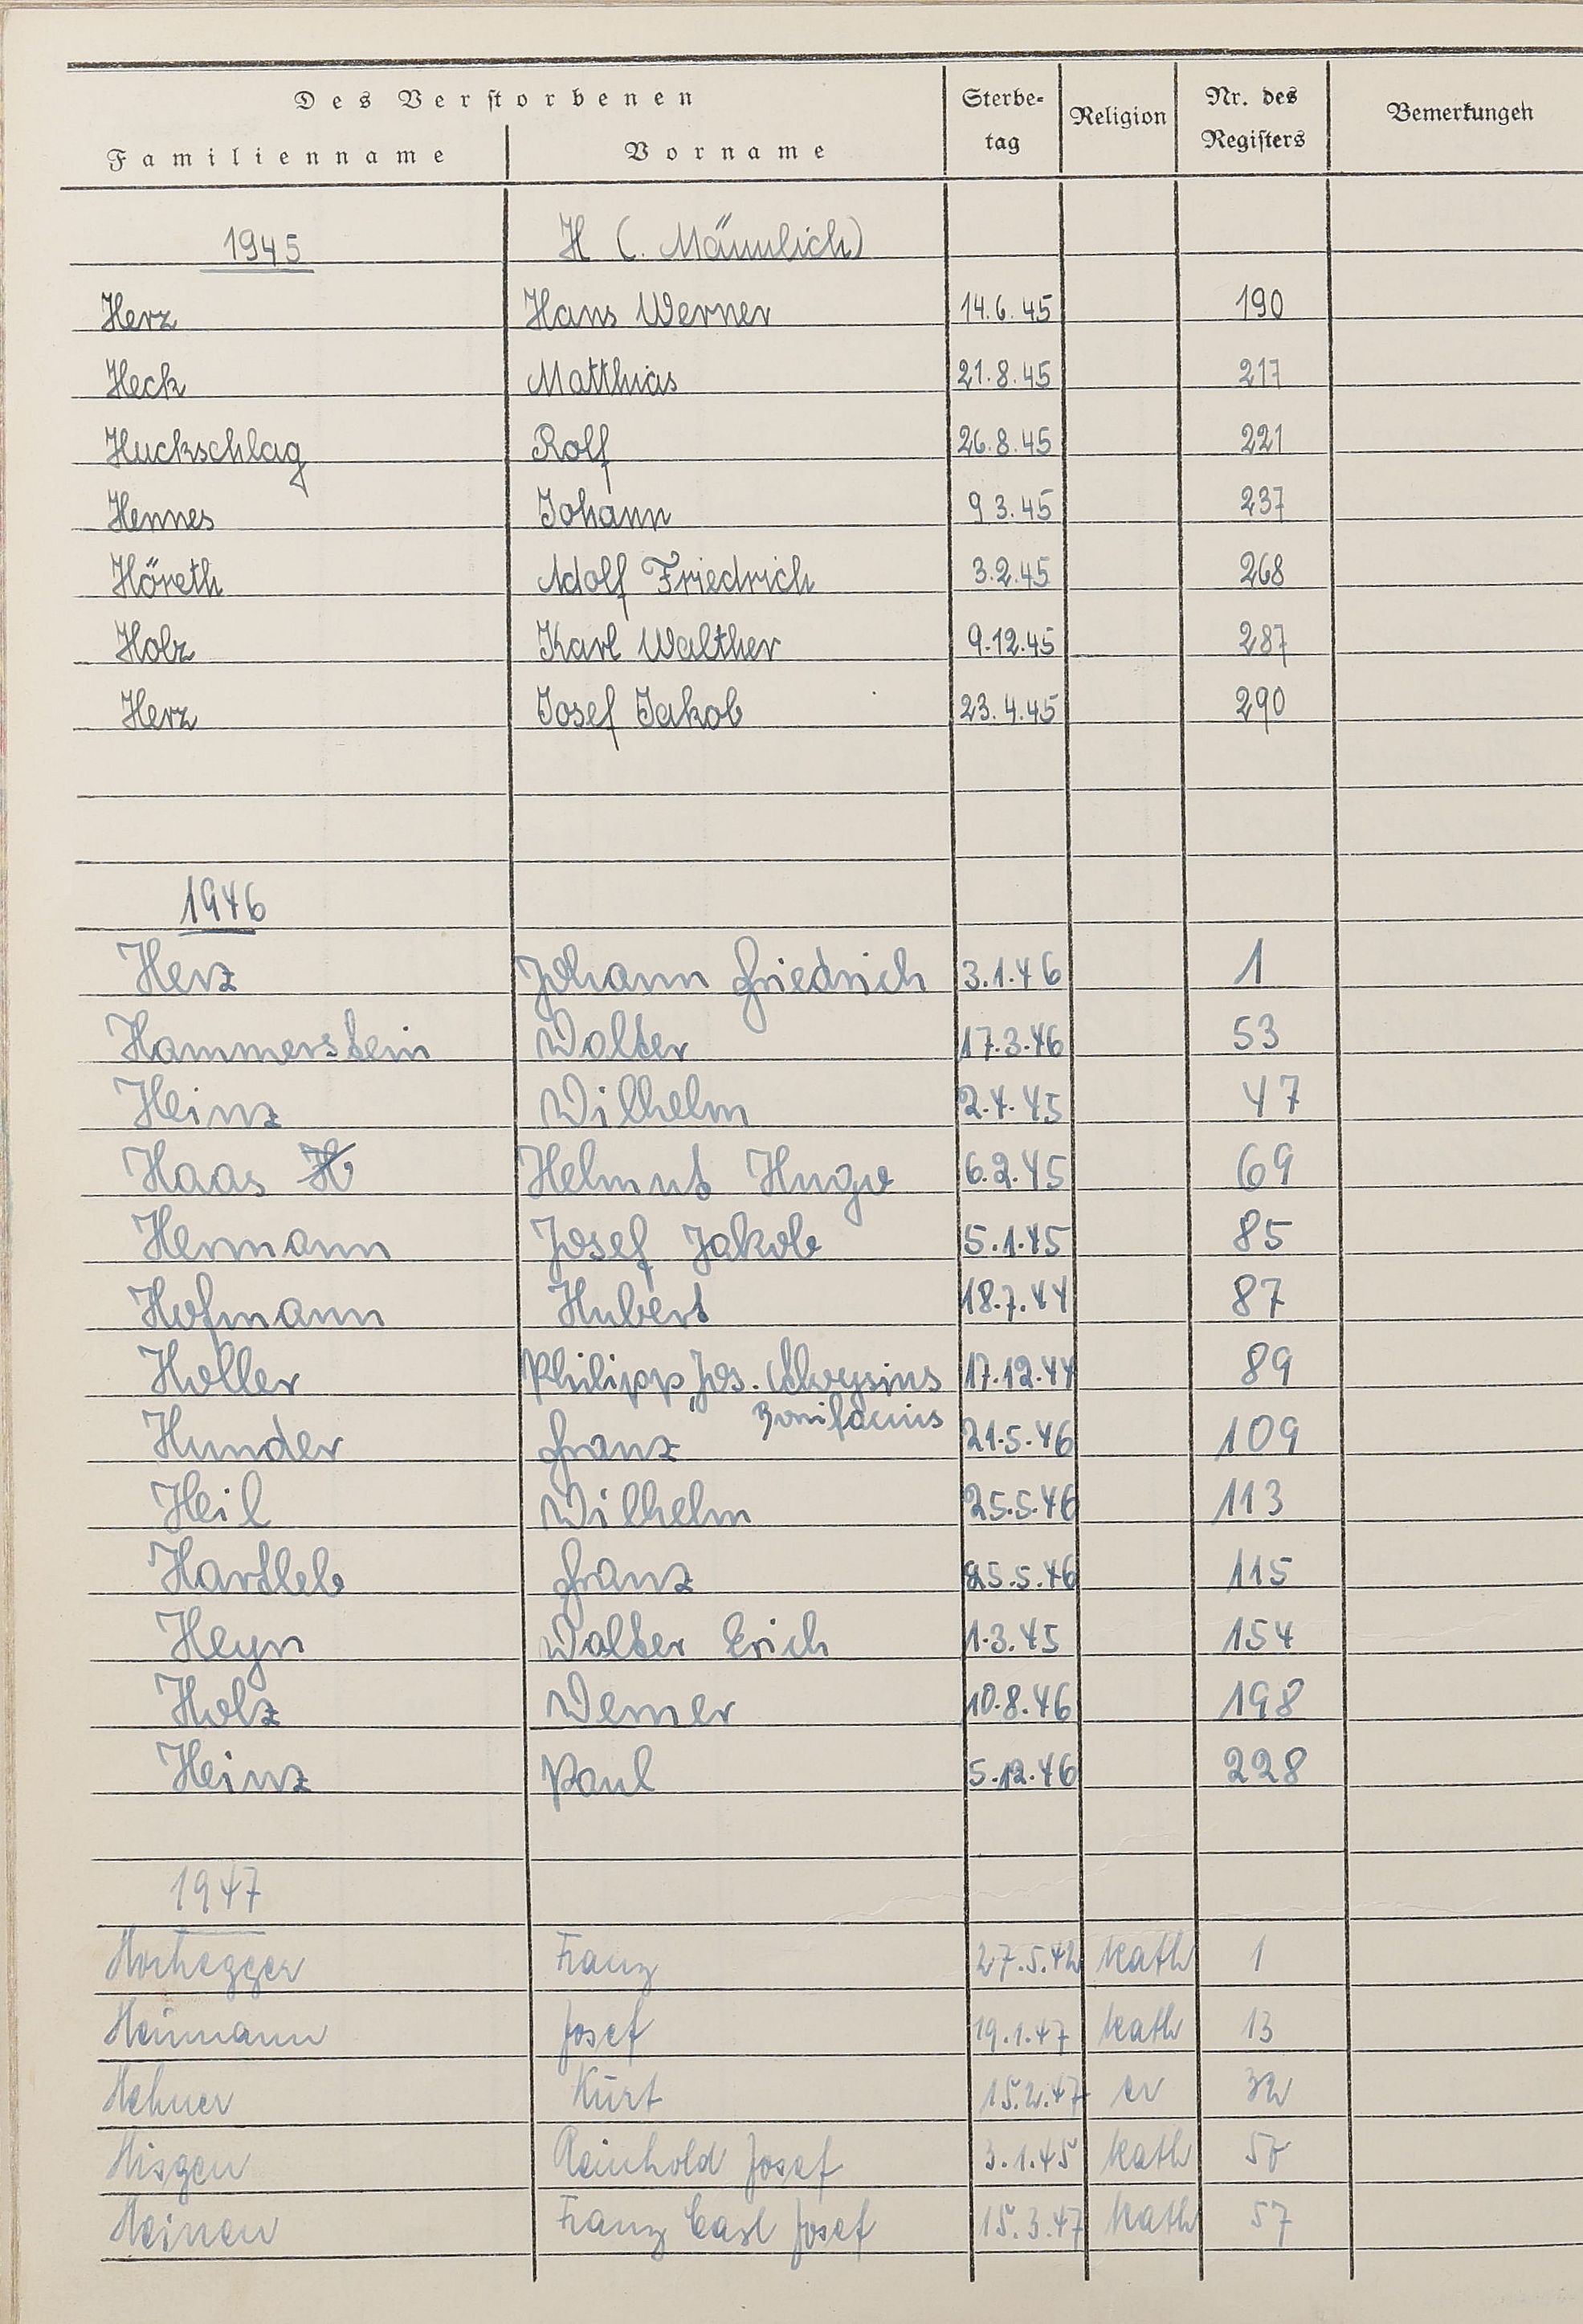 Des Verstorbenen
Familienname Vorname Sterbe-tag Religion Nr. des Registers Bemerkungen
1945 H (. Männlich)
Herz Hans Werner 14.6.45 190
Heck Matthias 21.8.45 217
Huckschlag Rolf 26.8.45 221
Hennes Johann 9 3.45 237
Höreth Adolf Friedrich 3.2.45 268
Holz Karl Walther 9.12.45 287
Herz Josef Jakob 23.4.45 290
1946
Herz Johann Friedrich 3.1.46 1
Hammerstein Walter 17.3.46 53
Heinz Wilhelm 2.4.45 47
Haas H Helmut Hugo 6.2.45 69
Hermann Josef Jakob 5.1.45 85
Hofmann Hubert 18.7.44 87
Holler Philipp Jos. Aloysius 17.12.44 89
Bonifacius
Hunder Franz 21.5.46 109
Heil Wilhelm 25.5.46 113
Hartleb Franz 25.5.46 115
Heyn Walter Erich 1.3.45 154
Holz Werner 10.8.46 198
Heinz Paul 5.12.46 228
1947
Hochegger Franz 27.5.42 kath 1
Heimann Josef 19.1.47 kath 13
Hehner Kurt 15.2.47 ev 32
Hisgen Reinhold Josef 3.1.45 kath 50
Heinen Franz Carl Josef 15.3.47 kath 57